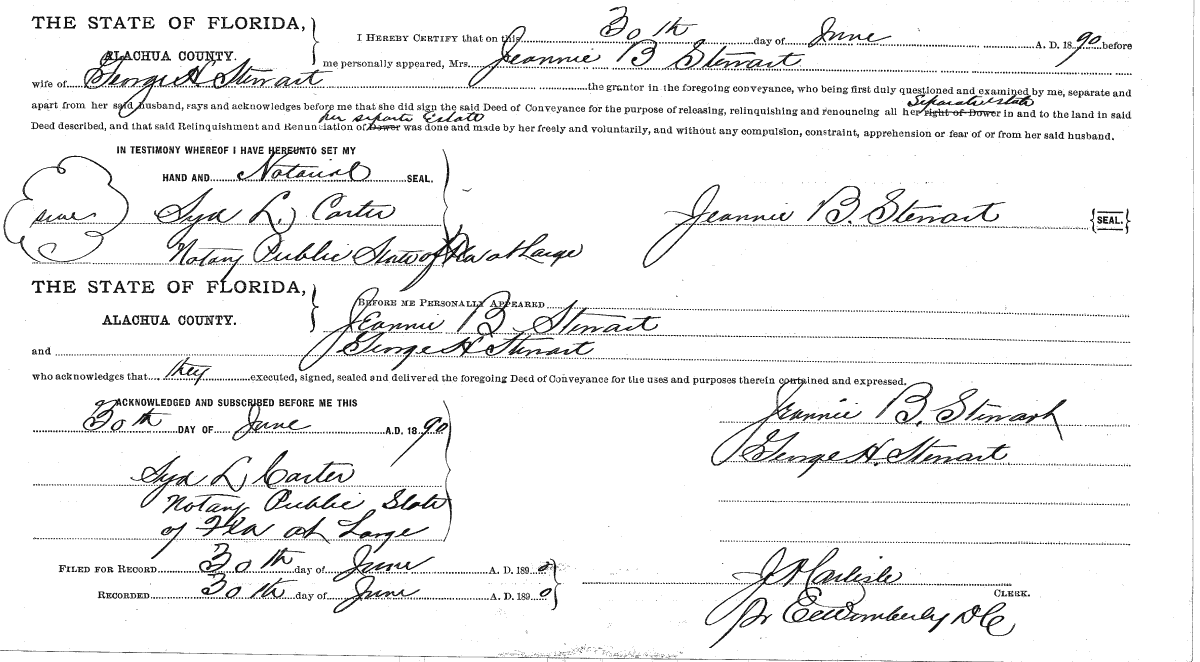 THE STATE OF FLORIDA,
ALACHUA COUNTY.
I HEREBY CERTIFY that on this 30th day of June A. D. 1890 before
me personally appeared, Mrs. Jeannie B Stewart
wife of George H Stewart the grantor in the foregoing conveyance, who being first duly questioned and examined by me, separate and
apart from her said husband, says and acknowledges before me that she did sign the said Deed of Conveyance for the purpose of releasing, relinquishing and renouncing all her right of Dower Separate estate in and to the land in said
Deed described, and that said Relinquishment and Renunciation of Dower her separate Estate was done and made by her freely and voluntarily, and without any compulsion, constraint, apprehension or fear of or from her said husband.
IN TESTIMONY WHEREOF I HAVE HEREUNTO SET MY
HAND AND Notarial SEAL.
Syd L. Carter
Notary Public State of Fla at Large
Jeannie B. Stewart {SEAL.}
THE STATE OF FLORIDA,
ALACHUA COUNTY.
BEFORE ME PERSONALLY APPEARED
Jeannie B Stewart
and George H Stewart
who acknowledges that they executed, signed, sealed and delivered the foregoing Deed of Conveyance for the uses and purposes therein contained and expressed.
ACKNOWLEDGED AND SUBSCRIBED BEFORE ME THIS
30th DAY OF June A.D. 1890
Syd L Carter
Notary Public State
of Fla at Large
Jeannie B. Stewart
George H. Stewart
FILED FOR RECORD 30th day of June A. D. 1890
RECORDED 30th day of June A. D. 1890
J A Carlisle
CLERK.
pr E E Wimberly D C